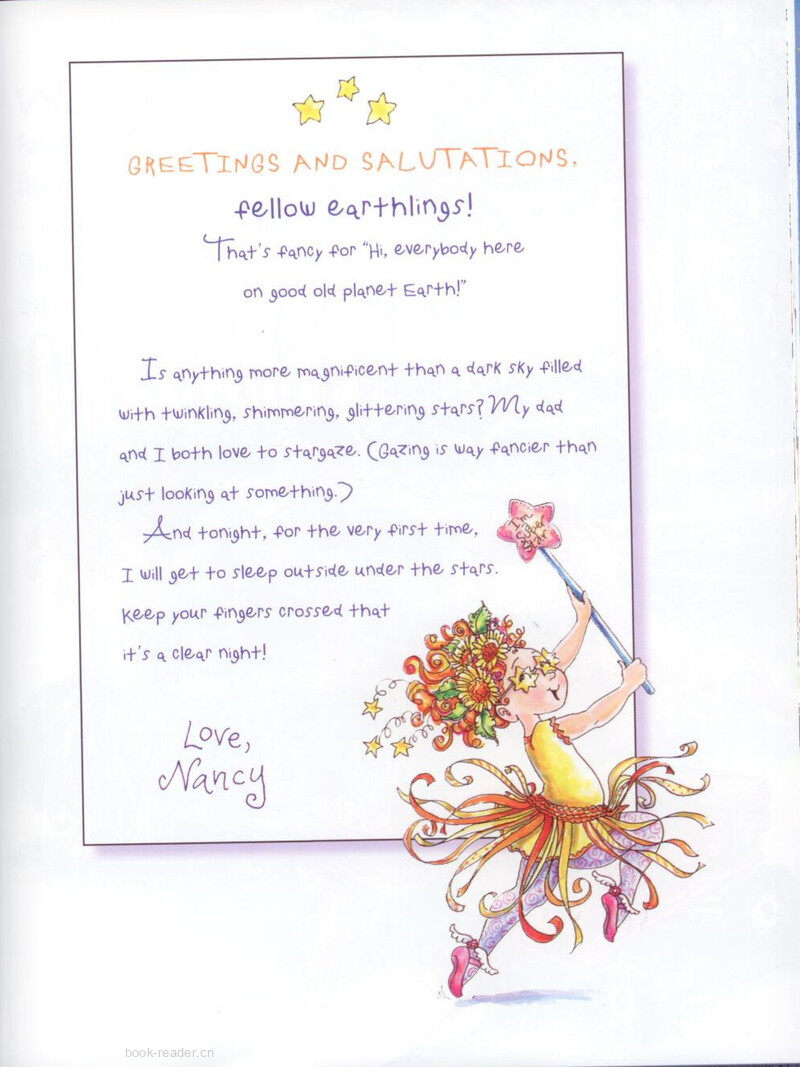 GREETINGS AND SALUTATIONS,
fellow earthlings!
That's fancy for "Hi, everybody here
on good old planet Earth!"
Is anything more magnificent than a dark sky filled
with twinkling, shimmering, glittering stars? My dad
and I both love to stargaze. (Gazing is way fancier than
just looking at something.)
And tonight, for the very first time,
I will get to sleep outside under the stars.
Keep your fingers crossed that
it's a clear night!
Love,
Nancy
I'm
a
Star
book-reader.cn